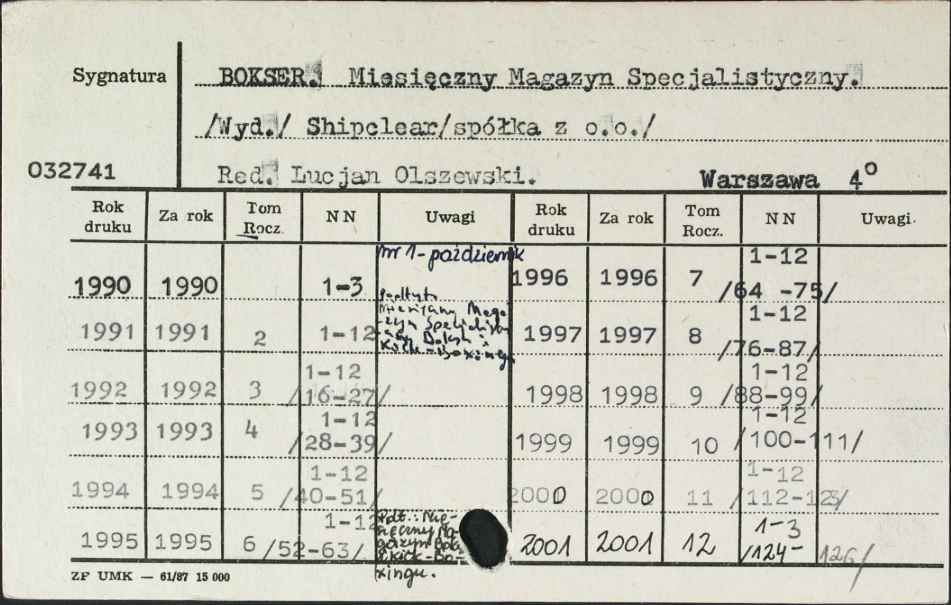 Sygnatura
BOKSER. Miesięczny Magazyn Specjalistyczny.
/Wyd./ Shipclear/spółka z o.o./
032741
Red. Lucjan Olszewski.
Warszawa 4°
Rok druku Za rok Tom Rocz. NN Uwagi Rok druku Za rok Tom Rocz. NN Uwagi.
nr 1- październik
1990 1990 1-3
1996 1996 7 1-12 /64 -75/
Podtytuł
Miesięczny Maga
-zyn Specjalisty
-czny Boksu i
Kick-Boxingu
1991 1991 2 1-12
1997 1997 8 1-12 /76-87/
1992 1992 3 1-12 /16-27/
1998 1998 9 1-12 /88-99/
1993 1993 4 1-12 /28-39/
1999 1999 10 1-12 /100-111/
1994 1994 5 1-12 /40-51/
2000 2000 11 1-12 /112-123/
1995 1995 6 1-12 /52-63/
Pdt.: Mie-
sięczny Ma-
gazyn
Kick-Bo-
xingu.
2001 2001 12 1-3 /124-126/
ZP UMK — 61/87 15 000